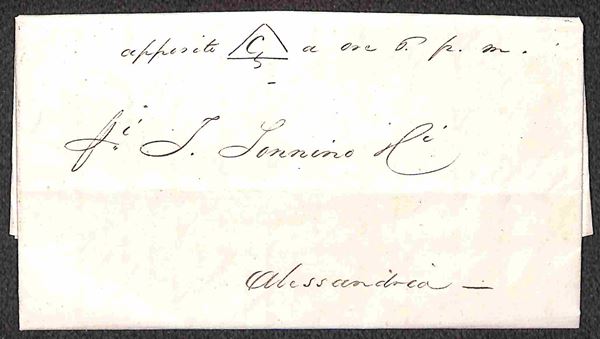 apposito C a ore 6. p. m.
S.i J. Sonnino &c.i
Alessandria —